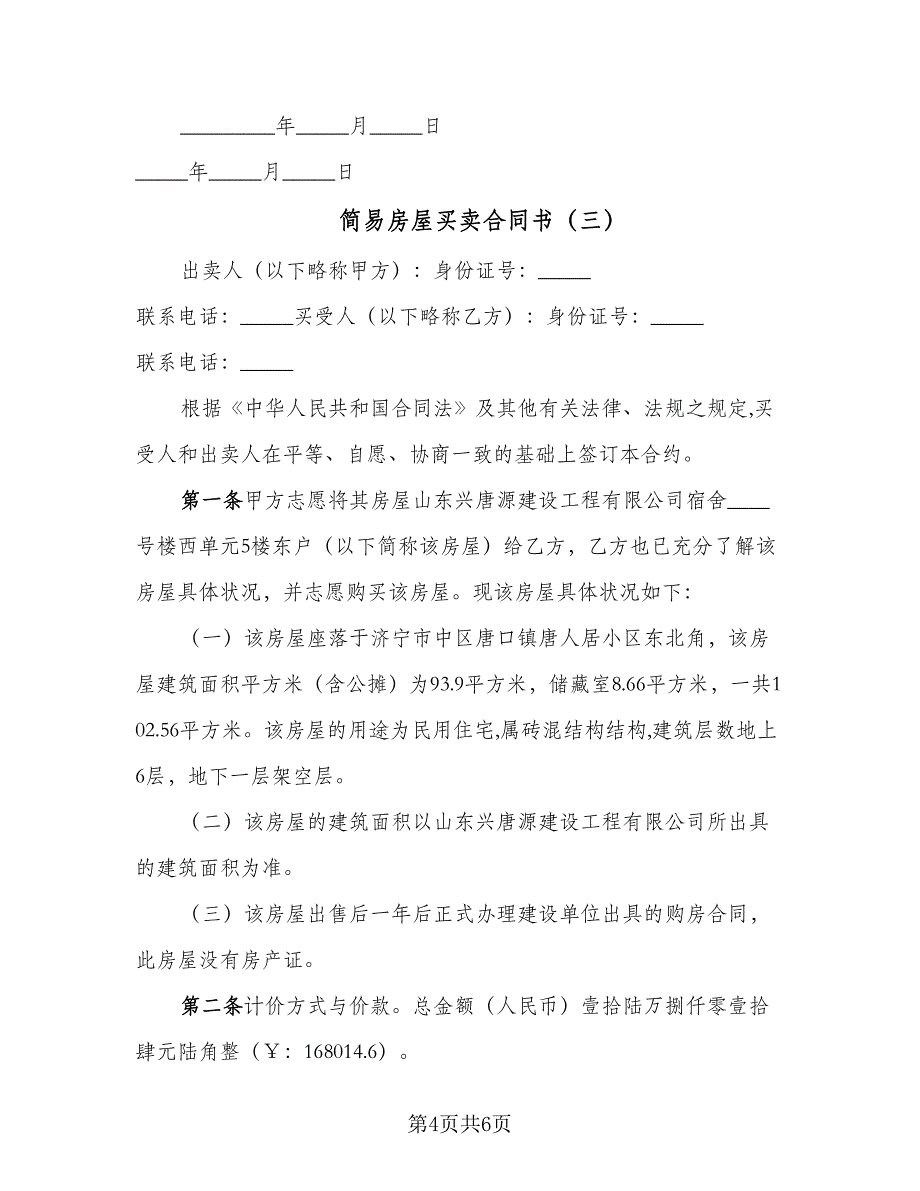 _________年_____月_____日
_____年_____月_____日
简易房屋买卖合同书（三）
出卖人（以下略称甲方）：身份证号：_____
联系电话：_____买受人（以下略称乙方）：身份证号：_____
联系电话：_____
根据《中华人民共和国合同法》及其他有关法律、法规之规定,买
受人和出卖人在平等、自愿、协商一致的基础上签订本合约。
第一条甲方志愿将其房屋山东兴唐源建设工程有限公司宿舍____
号楼西单元5楼东户（以下简称该房屋）给乙方，乙方也已充分了解该
房屋具体状况，并志愿购买该房屋。现该房屋具体状况如下：
（一）该房屋座落于济宁市中区唐口镇唐人居小区东北角，该房
屋建筑面积平方米（含公摊）为93.9平方米，储藏室8.66平方米，一共1
02.56平方米。该房屋的用途为民用住宅,属砖混结构结构,建筑层数地上
6层，地下一层架空层。
（二）该房屋的建筑面积以山东兴唐源建设工程有限公司所出具
的建筑面积为准。
（三）该房屋出售后一年后正式办理建设单位出具的购房合同，
此房屋没有房产证。
第二条计价方式与价款。总金额（人民币）壹拾陆万捌仟零壹拾
肆元陆角整（￥：168014.6）。
第4页共6页